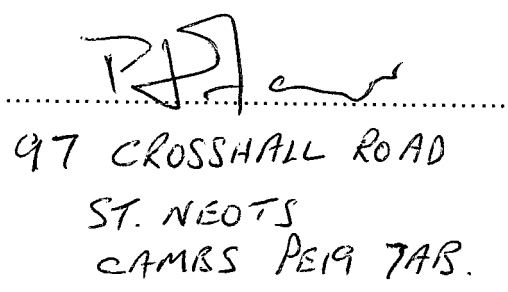 97 CROSSHALL ROAD
ST. NEOTS
CAMBS PE19 7AB.